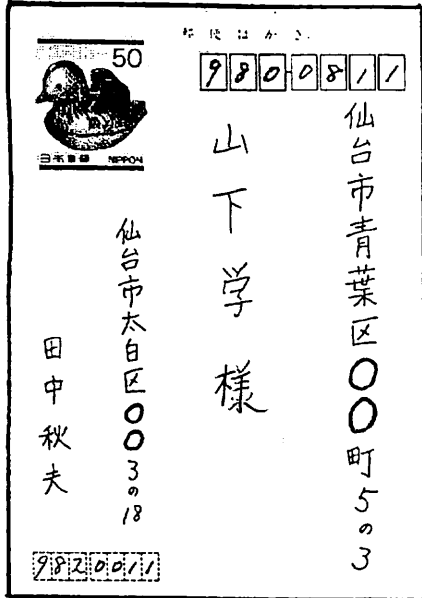 郵便はがき
50
日本郵便 NIPPON
980-0811
仙台市青葉区〇〇町5の3
山下学様
仙台市太白区〇〇3の18
田中秋夫
9820011